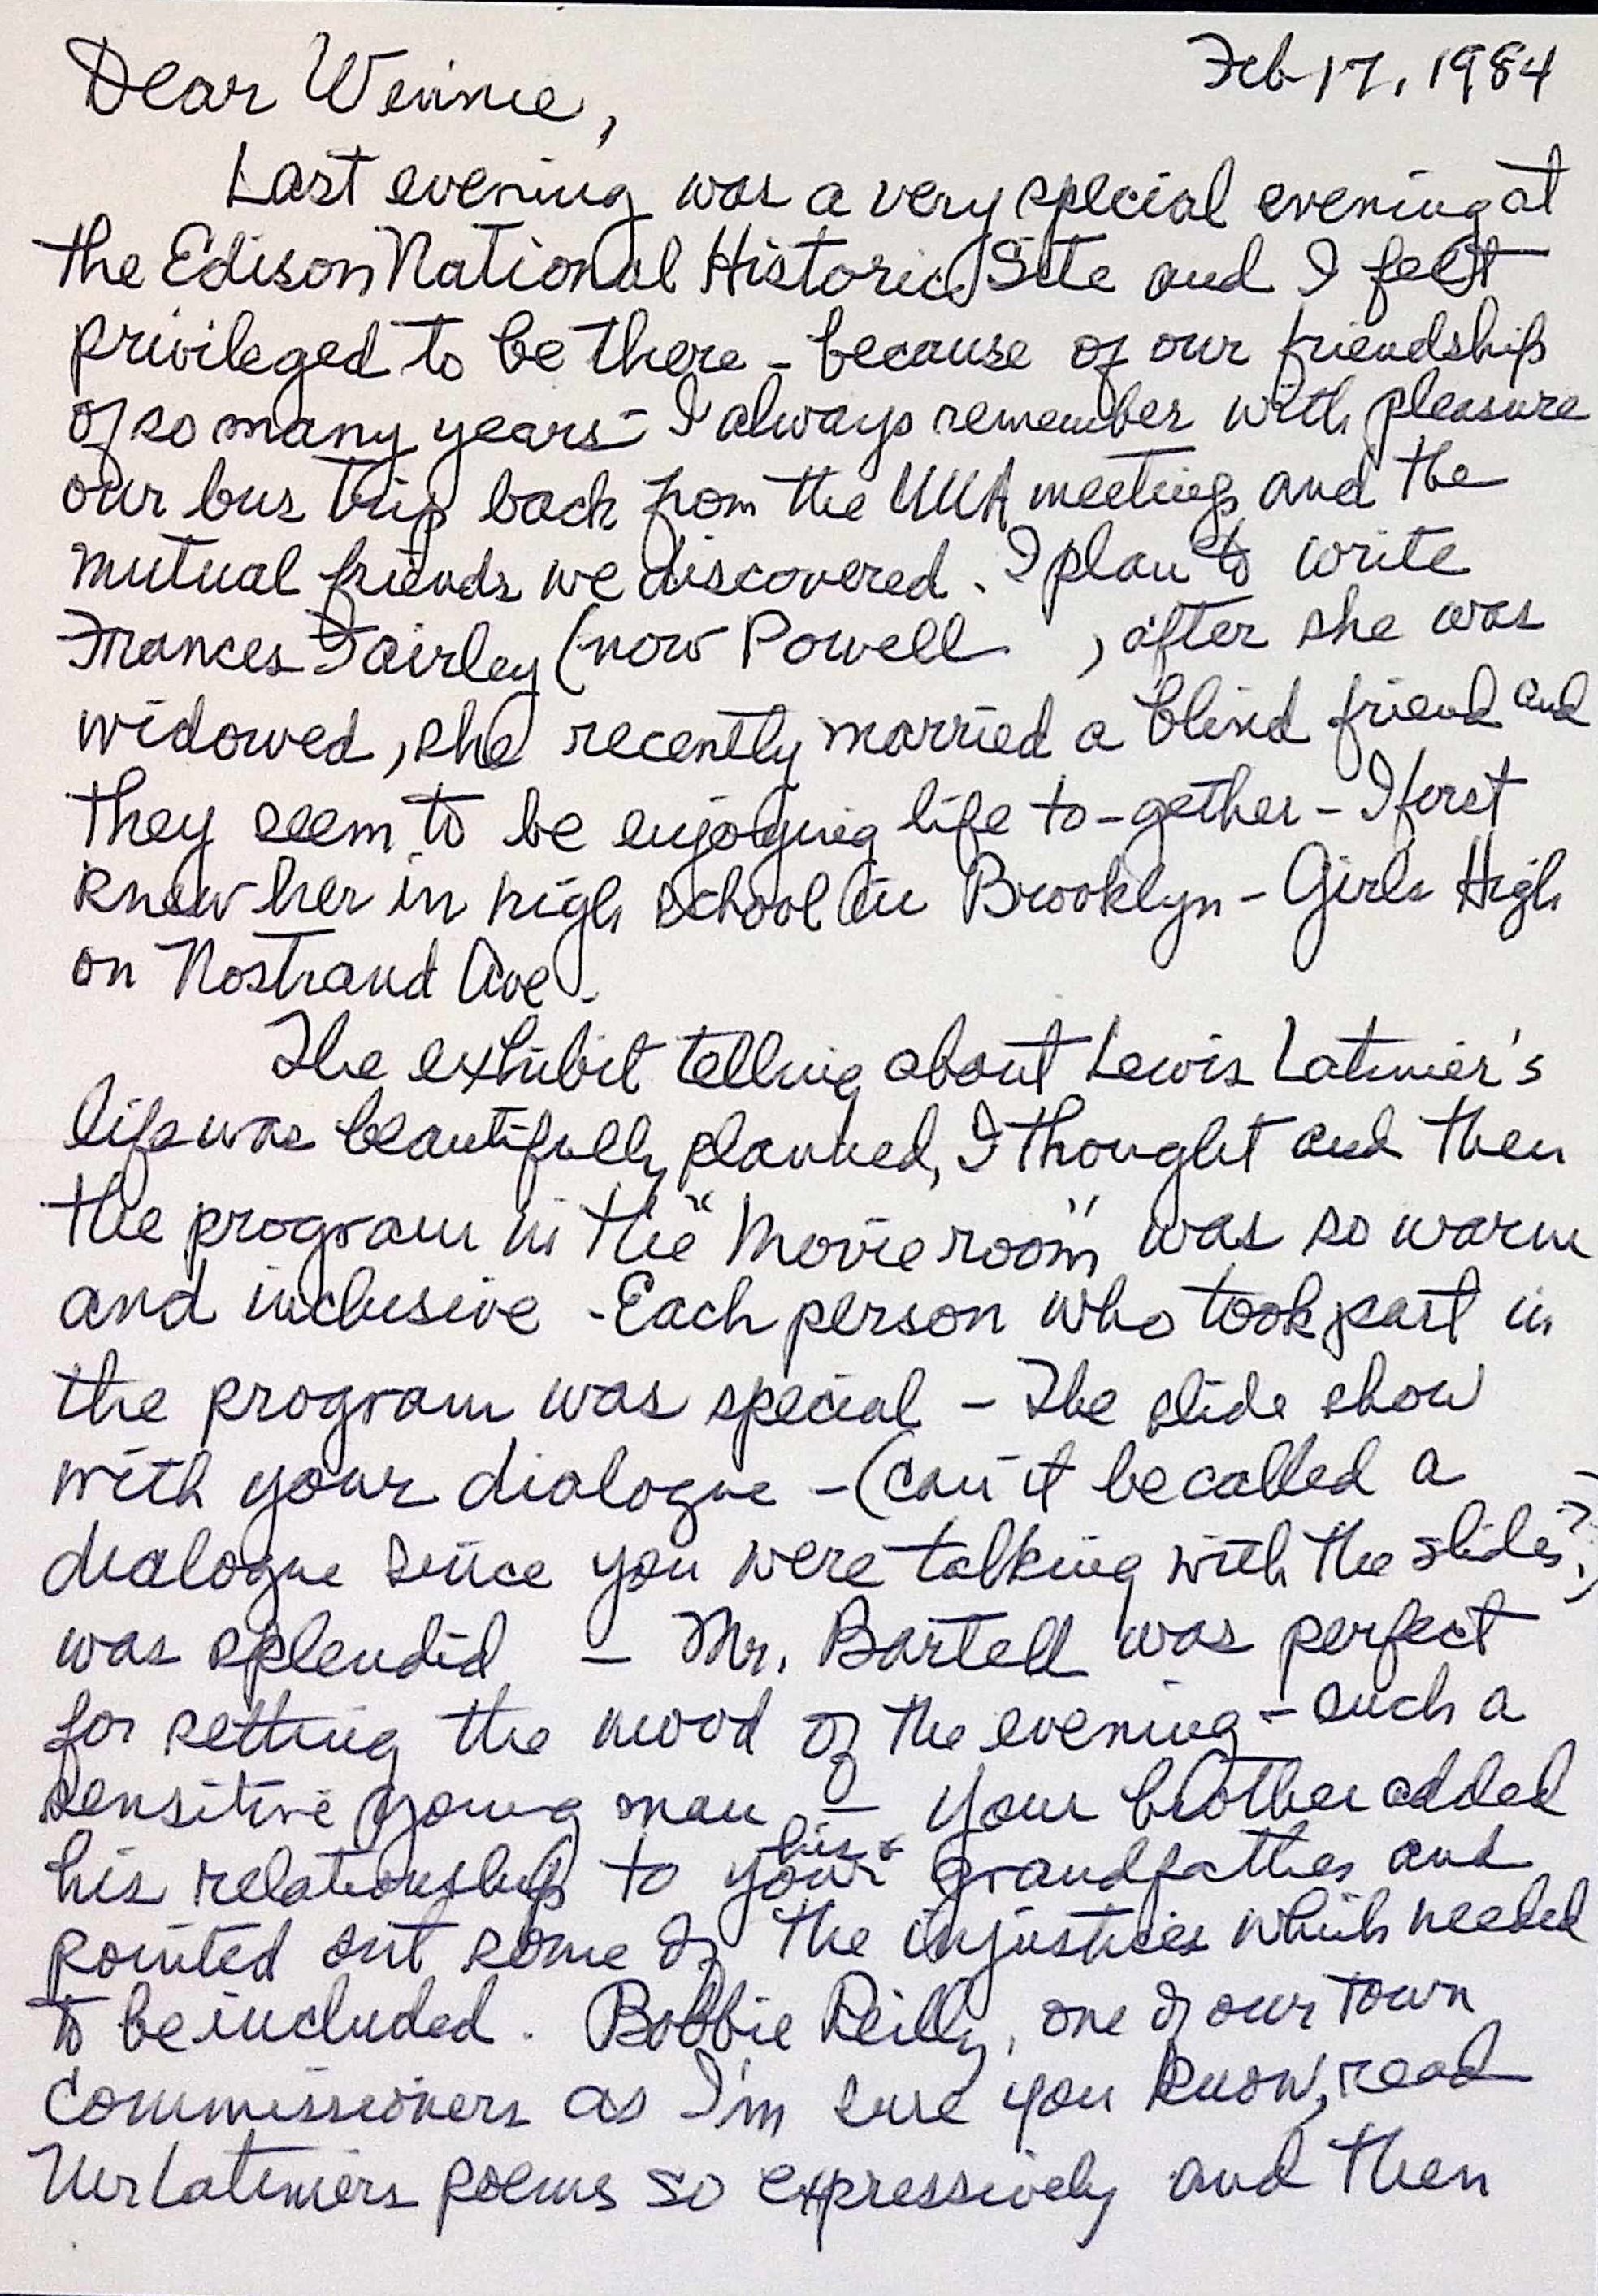 Feb 17, 1984
Dear Winnie,
Last evening was a very special evening at
the Edison National Historic Site and I felt
privileged to be there - because of our friendship
of so many years - I always remember with pleasure
our bus trip back from the UUA meetings and the
mutual friends we discovered. I plan to write
Frances Fairley (now Powell ), after she was
widowed, she recently married a blind friend and
they seem to be enjoying life to-gether - I first
knew her in high school in Brooklyn - Girls High
on Nostrand Ave.
The exhibit telling about Lewis Latimer's
life was beautifully planned, I thought and then
the program in the "Movie room" was so warm
and inclusive - Each person who took part in
the program was special - The slide show
with your dialogue - (can it be called a
dialogue since you were talking with the slides?)
was splendid - Mr. Bartell was perfect
for setting the mood of the evening - such a
sensitive young man - Your brother added
his &
his relationship to your grandfather and
pointed out some of the injustices which needed
to be included. Bobbie Reilly, one of our town
commissioners as I'm sure you know, read
Mr Latimers poems so expressively and then